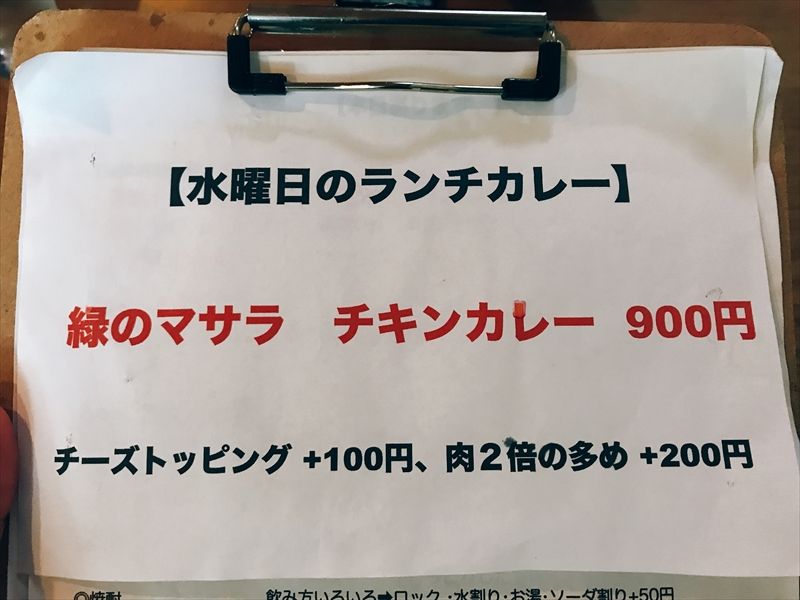 【水曜日のランチカレー】
緑のマサラ　チキンカレー 900円
チーズトッピング +100円、肉２倍の多め +200円
◎焼酎　飲み方いろいろ➡ロック・水割り・お湯・ソーダ割り+50円